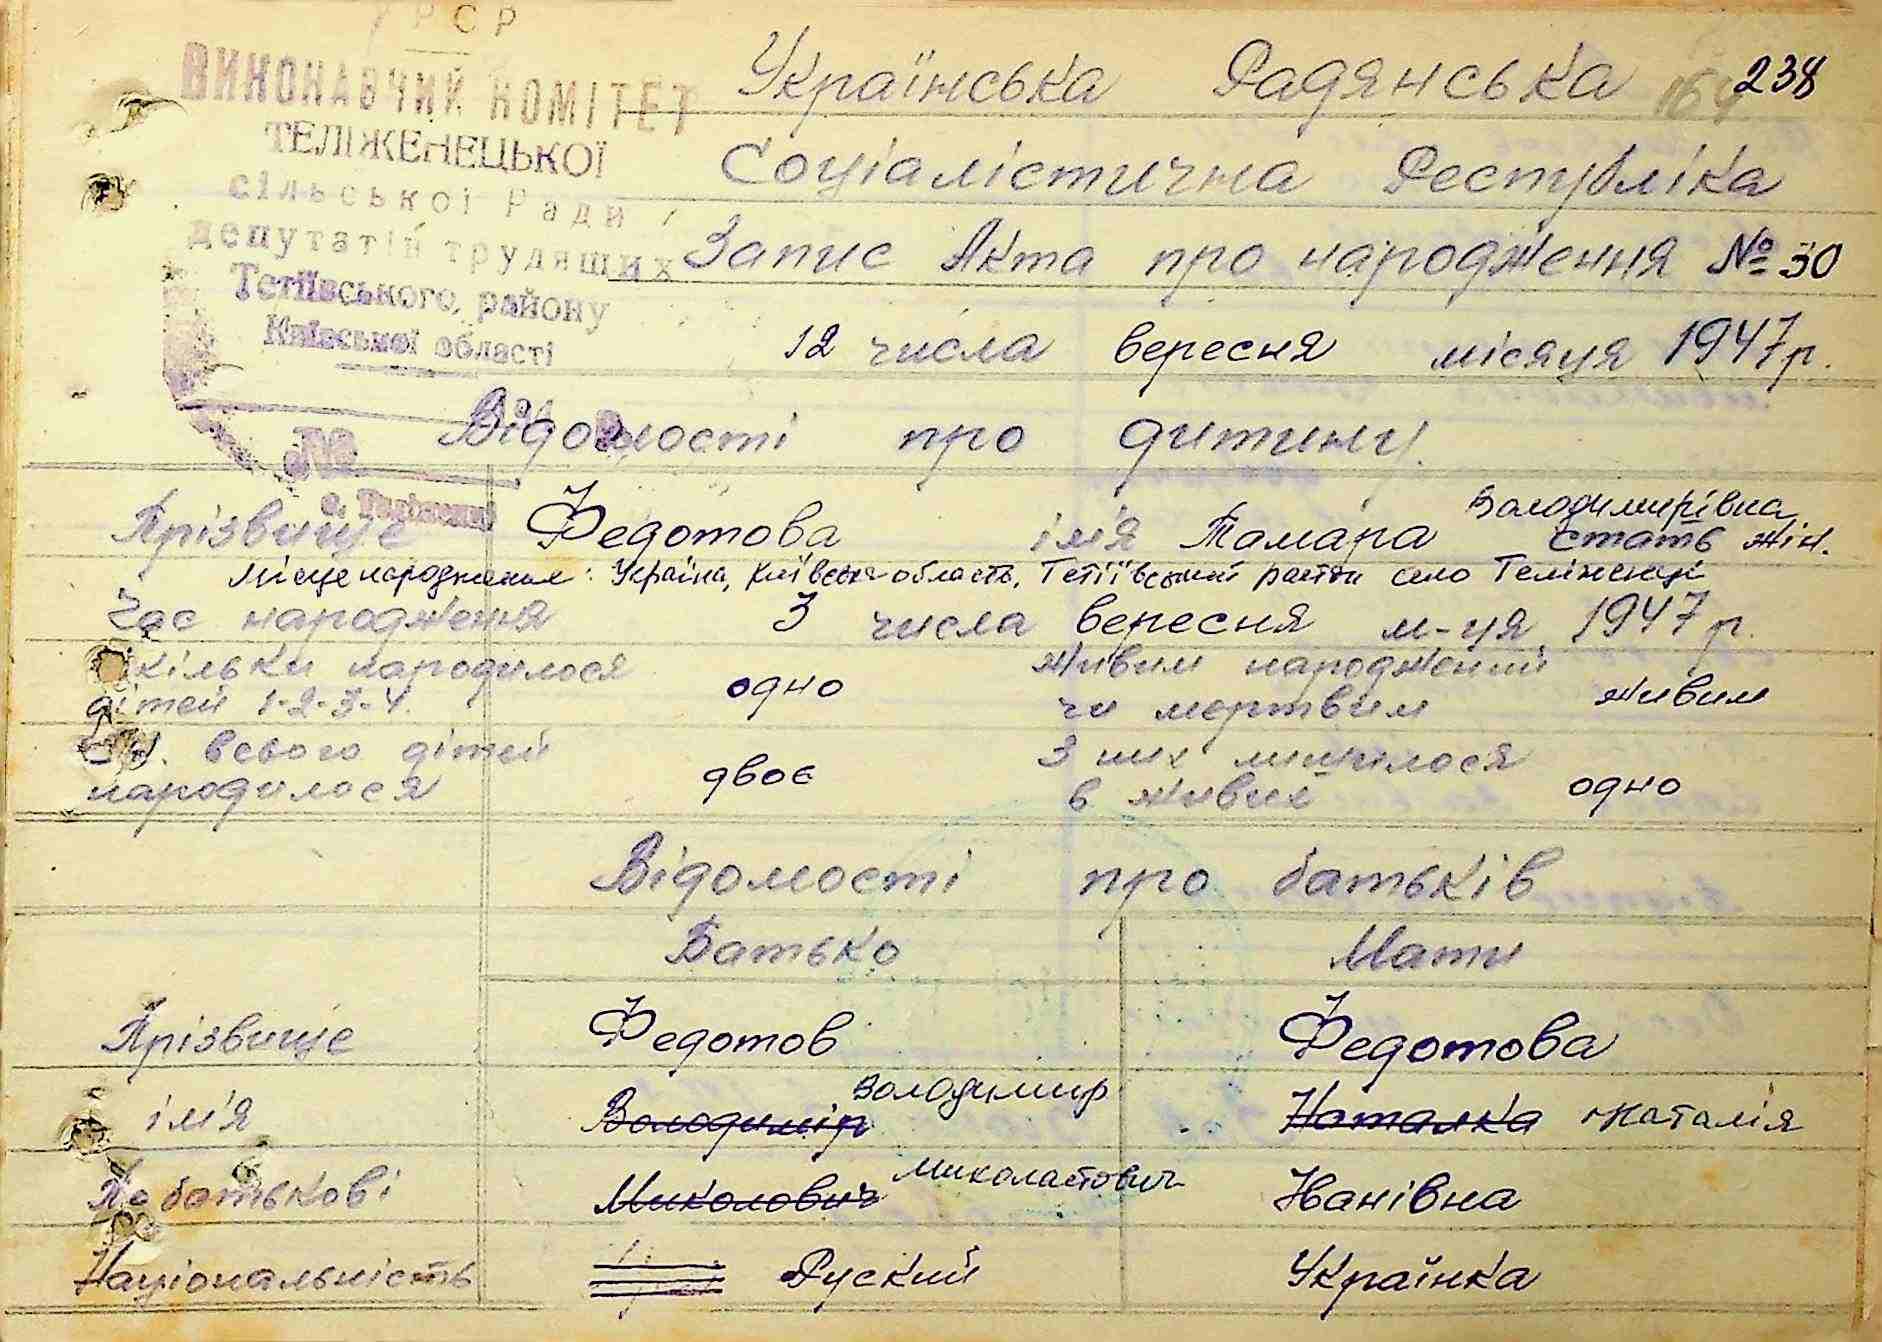 УРСР
ВИКОНАВЧИЙ КОМІТЕТ
ТЕЛІЖЕНЕЦЬКОЇ
сільської Ради
депутатів трудящих
Тетіївського, району
Київської області
№
с. Теліженці
238
Українська Радянська
Соціалістична Республіка
Запис Акта про народження № 30
12 числа вересня місяця 1947 р.
Відомості про дитину
Прізвище Федотова ім'я Тамара Володимирівна стать жін.
Місце народження: Україна, Київська область, Тетіївський район село Теліженці
Час народження 3 числа вересня м-ця 1947 р.
Скільки народилося дітей 1-2-3-4. одно Живим народжений чи мертвим живим
всього дітей народилося двоє З них лишилося в живих одно
Відомості про батьків
Батько Мати
Прізвище Федотов Федотова
ім'я Володимір Володимир Наталка Наталія
По батькові Миколович Миколайович Іванівна
Національність Руский Українка